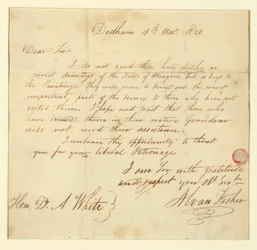 Dedham 18th Nov. 1820
Dear Sir
I do not send these little sketches as
correct drawings of the Falls of Niagara, but as keys to
the Paintings they will serve to point out the most
important parts of the scenery to those who have not
visited them. I hope and trust that those who
have them in their native Grandeur
will not need their assistance.
I embrace this opportunity to thank
you for your liberal Patronage
I am Sir with gratitude
and respect your Obt Servt
Alvan Fisher
Hon. D. A. White